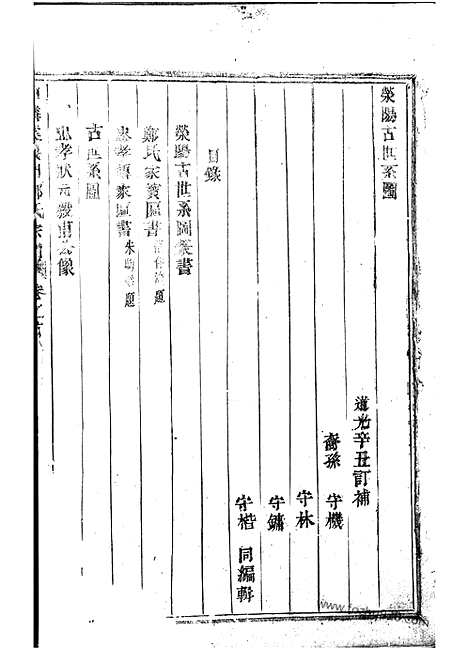 滎陽古世系圖
道光辛丑訂補
裔孫 守機
守林
守鏞
守楷 同編輯
目錄
滎陽古世系圖篆書
鄭氏家寶區書 題
忠孝傳家區書 朱 題
古世系圖
忠孝狀元 像
鄭氏宗